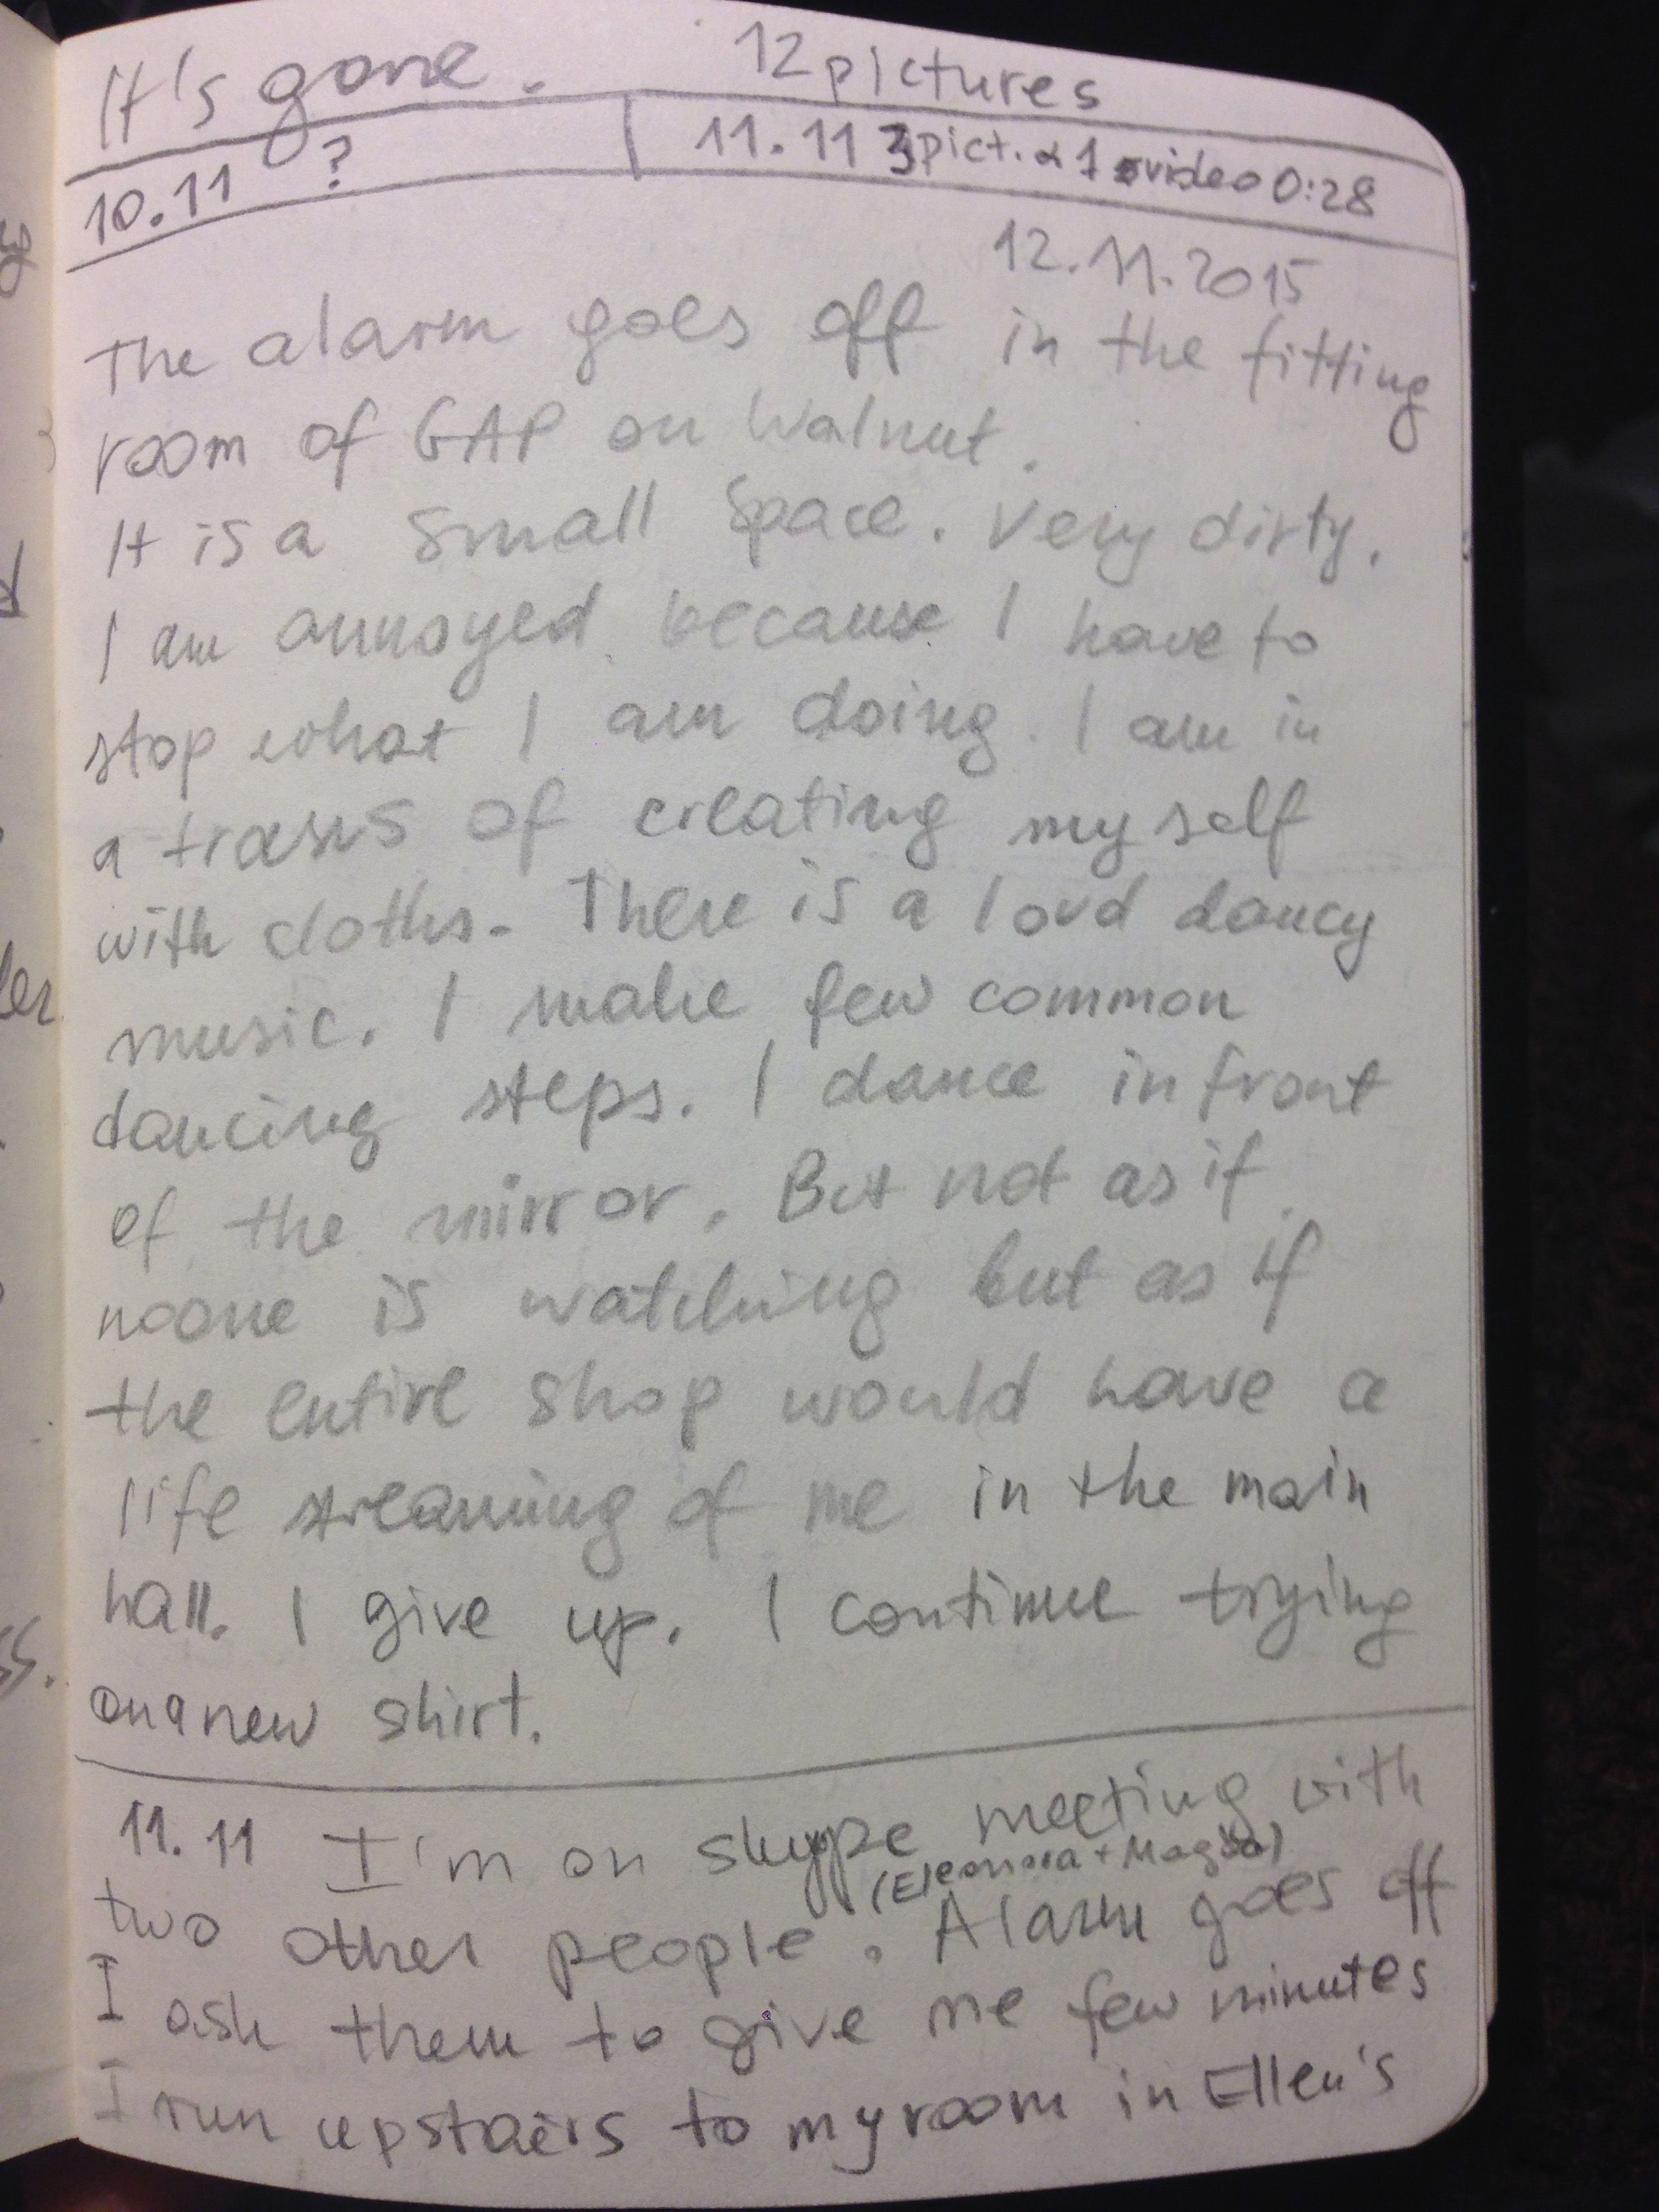 It's gone. 12 pictures
10.11 ? 11.11 3pict. & 1 video 0:28
12.11.2015
The alarm goes off in the fitting
room of GAP on Walnut.
It is a small space. Very dirty.
I am annoyed because I have to
stop what I am doing. I am in
a trans of creating myself
with cloths. There is a loud dancy
music. I make few common
dancing steps. I dance infront
of the mirror. But not as if
noone is watching but as if
the entire shop would have a
life streaming of me in the main
hall. I give up. I continue trying
on a new shirt.
11.11 I'm on skype meeting with
(Eleonora + Magda)
two other people. Alarm goes off
I ask them to give me few minutes
I run upstairs to my room in Ellen's